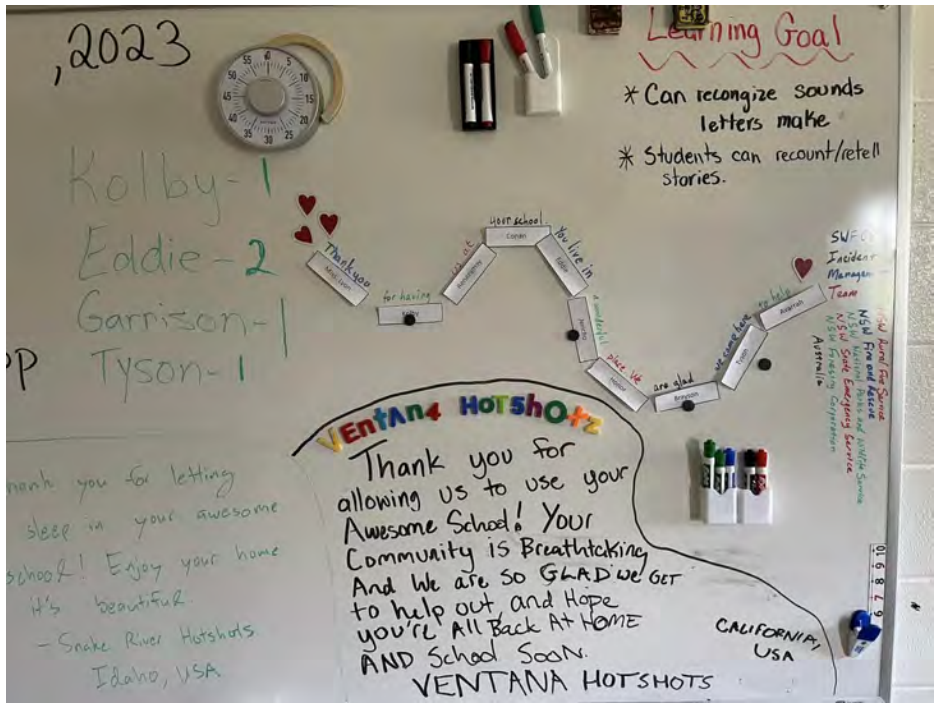 ,2023
55 10 5
50
45 15
40 20
35 30 25
Learning Goal
* Can recongize sounds
letters make
* Students can recount/retell
stories.
Kolby-1
Eddie-2
Garrison-1
Tyson-1
Thank you
for having
your school.
Conan
You live in
Eddie
a wonderful
place. We
are glad
Brayson
we came here
Tyson
to help
Incident
Team
NSW Rural Fire Service
NSW Fire and Rescue
NSW National Parks and Wildlife Service
NSW State Emergency Service
NSW Foresing Corporation
Australia
VEntANa HOtShOtz
Thank you for
allowing us to use your
Awesome School! Your
Community is Breathtcking
And We are so GLAD we GET
to help out, and Hope
you're All Back At HOME
AND School Soon.
VENTANA HOTSHOTS
CALIFORNIA,
USA
you for letting
sleep in your awesome
school! Enjoy your home
it's beautiful.
- Snake River Hotshots
Idaho, USA
10 9 8 7 6